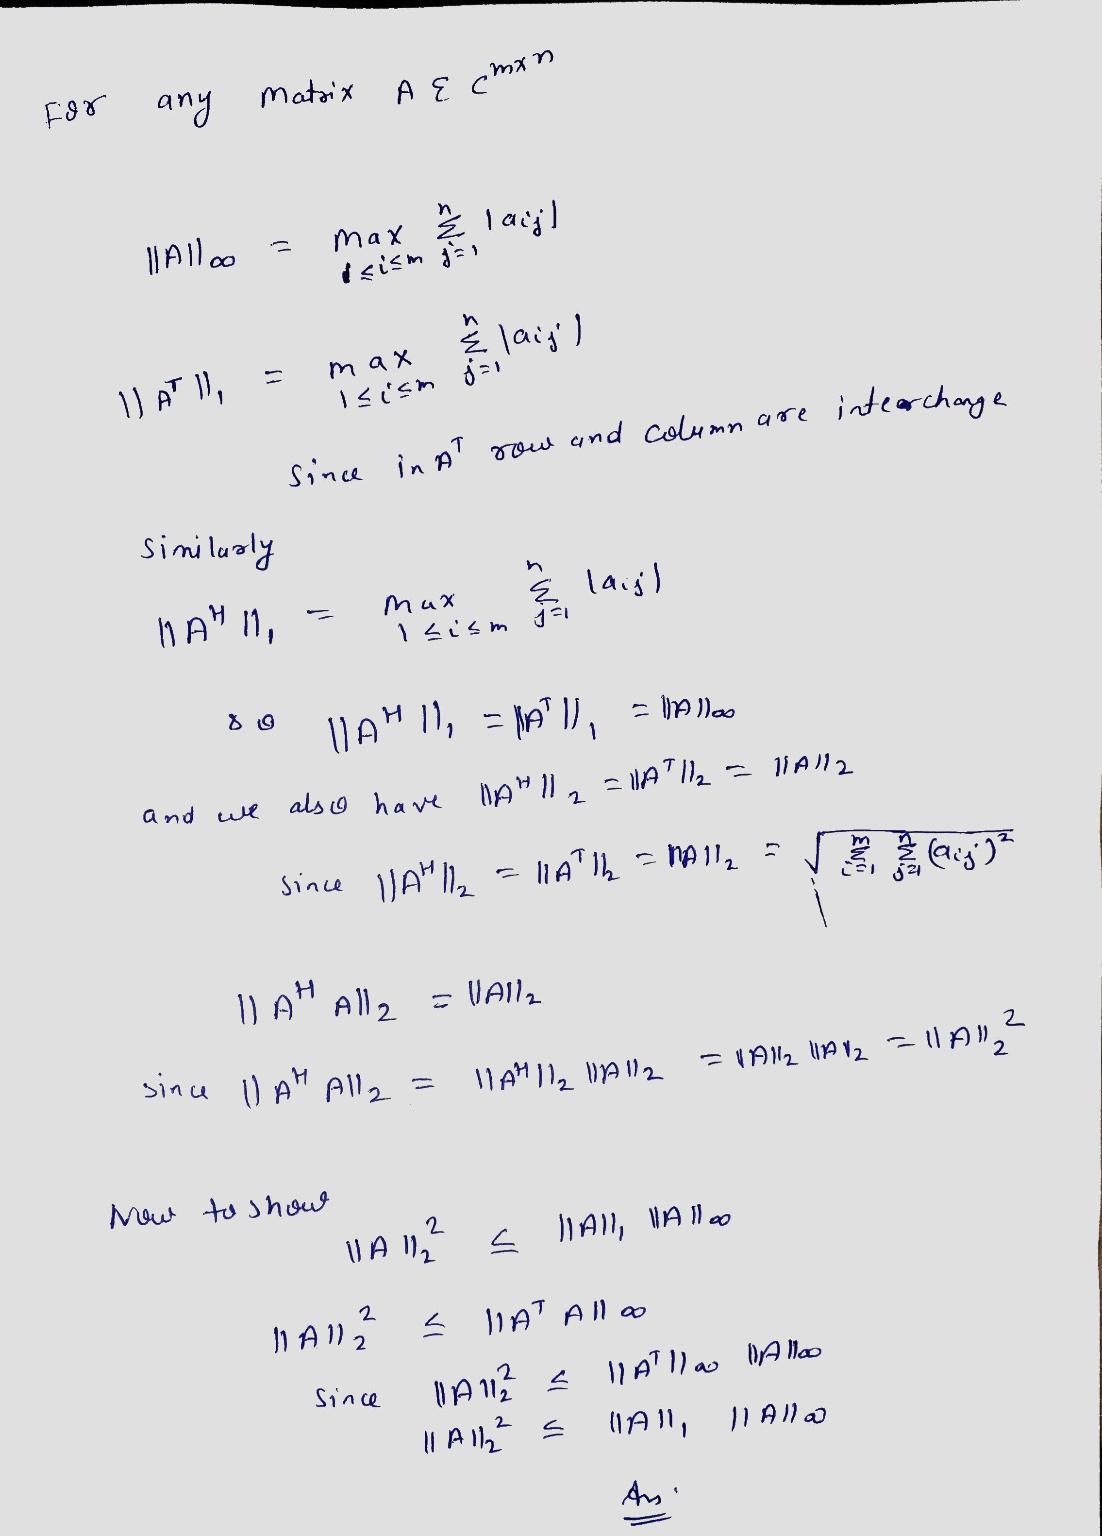 For any Matrix A ε C^{m×n}
||A||∞ = max_{1≤i≤m} Σ_{j=1}^{n} |aij|
||A^T||₁ = max_{1≤i≤m} Σ_{j=1}^{n} |aij|
Since in A^T row and column are interchange
Similarly
||A^H||₁ = max_{1≤i≤m} Σ_{j=1}^{n} |aij|
so ||A^H||₁ = ||A^T||₁ = ||A||∞
and we also have ||A^H||₂ = ||A^T||₂ = ||A||₂
Since ||A^H||₂ = ||A^T||₂ = ||A||₂ = √(Σ_{i=1}^{m} Σ_{j=1}^{n} (aij)²)
||A^H A||₂ = ||A||₂
Since ||A^H A||₂ = ||A^H||₂ ||A||₂ = ||A||₂ ||A||₂ = ||A||₂²
Now to show
||A||₂² ≤ ||A||₁ ||A||∞
||A||₂² ≤ ||A^T A||∞
Since ||A||₂² ≤ ||A^T||∞ ||A||∞
||A||₂² ≤ ||A||₁ ||A||∞
Ans.